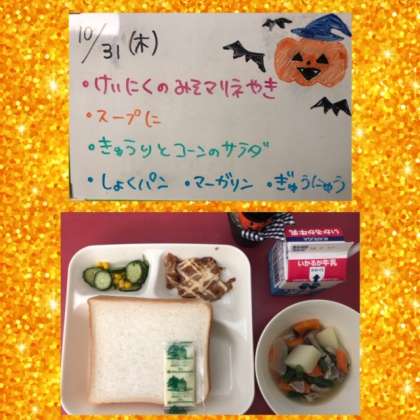 10/31(木)
・けいにくのみそマリネやき
・スープに
・きゅうりとコーンのサラダ
・しょくパン ・マーガリン ・ぎゅうにゅう
いかるが牛乳
いかるが牛乳